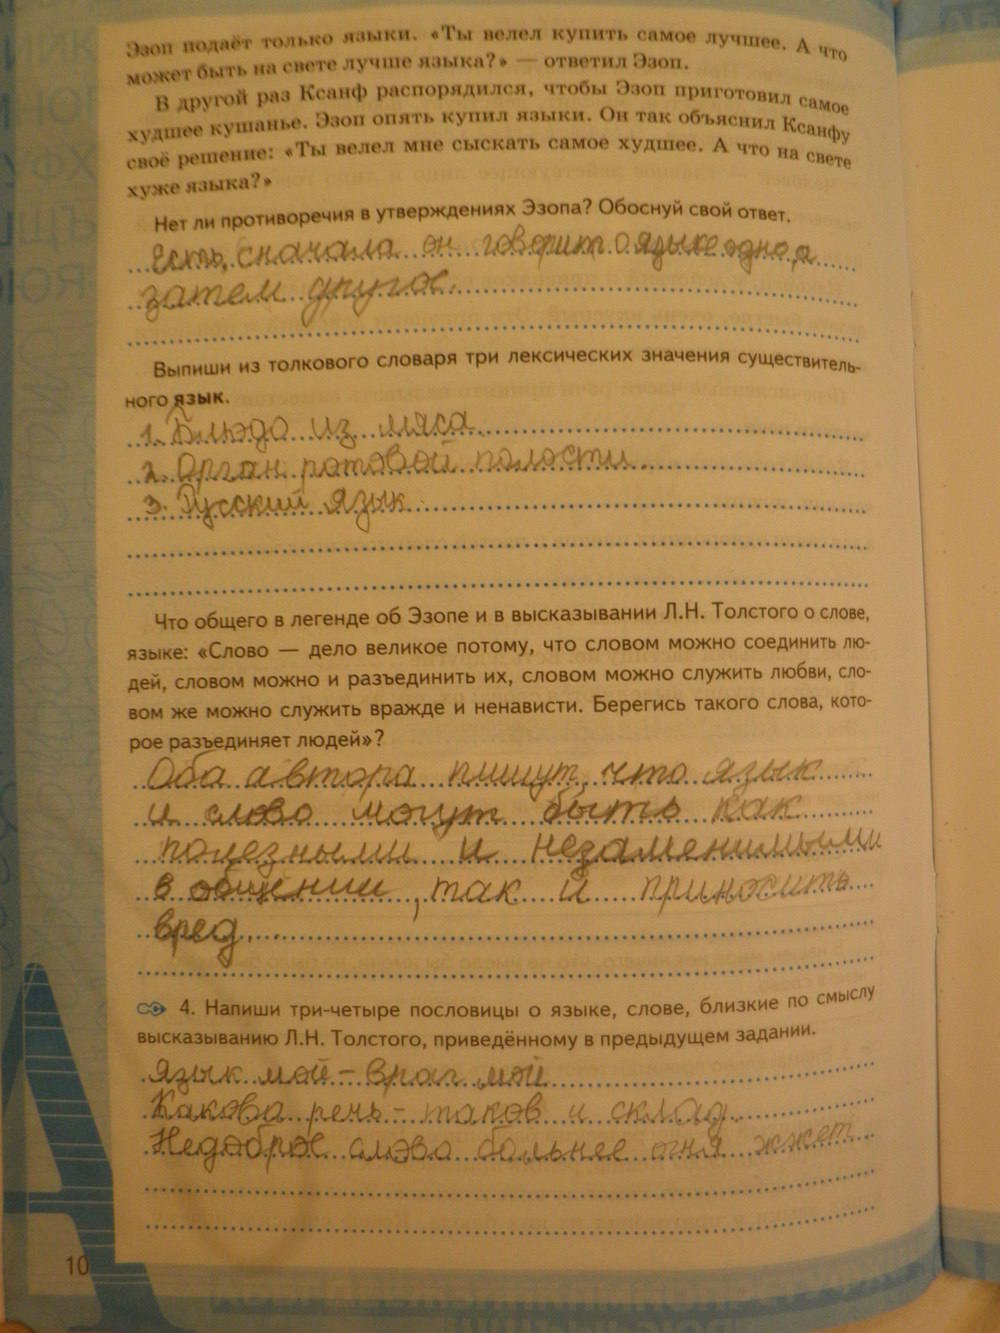 Эзоп подаёт только языки. «Ты велел купить самое лучшее. А что
может быть на свете лучше языка?» — ответил Эзоп.
В другой раз Ксанф распорядился, чтобы Эзоп приготовил самое
худшее кушанье. Эзоп опять купил языки. Он так объяснил Ксанфу
своё решение: «Ты велел мне сыскать самое худшее. А что на свете
хуже языка?»
Нет ли противоречия в утверждениях Эзопа? Обоснуй свой ответ.
Есть, сначала он говорит о языке одно, а
затем другое.
Выпиши из толкового словаря три лексических значения существитель-
ного язык.
1. Блюдо из мяса
2. Орган ротовой полости
3. Русский язык
Что общего в легенде об Эзопе и в высказывании Л.Н. Толстого о слове,
языке: «Слово — дело великое потому, что словом можно соединить лю-
дей, словом можно и разъединить их, словом можно служить любви, сло-
вом же можно служить вражде и ненависти. Берегись такого слова, кото-
рое разъединяет людей»?
Оба автора пишут, что язык
и слово могут быть как
полезными и незаменимыми
в общении, так и приносить
вред.
4. Напиши три-четыре пословицы о языке, слове, близкие по смыслу
высказыванию Л.Н. Толстого, приведённому в предыдущем задании.
Язык мой - враг мой
Какова речь - таков и склад.
Недоброе слово больнее огня жжет
10